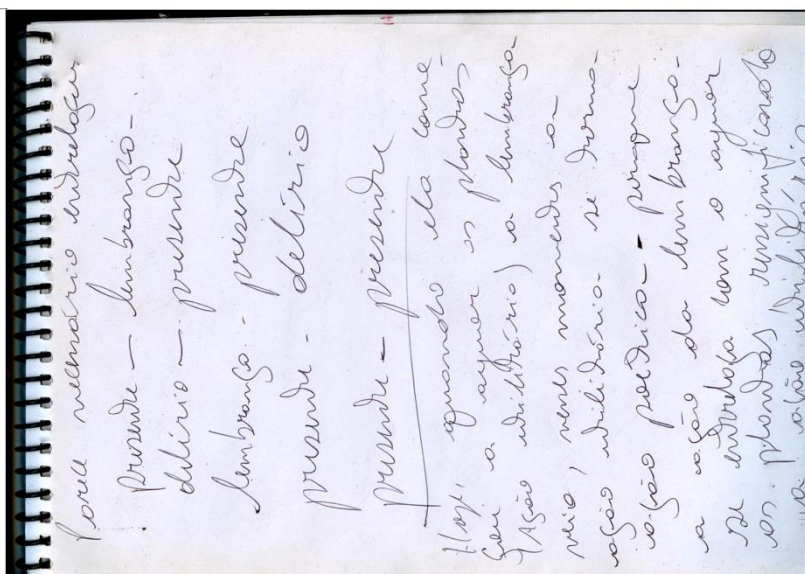 Parece necessário entrelaçar
presente — lembrança -
delírio — presente
lembrança - presente
presente - delírio
presente - presente
Hoje, quando ela come-
çou a aguar as plantas
(Ação utilitária) a lembrança
veio, nesses momentos a
ação utilitária se torna
ação poética - porque
a ação da lembrança
se entrelaça com o aguar
as plantas, ressignificando
a ação utilitária